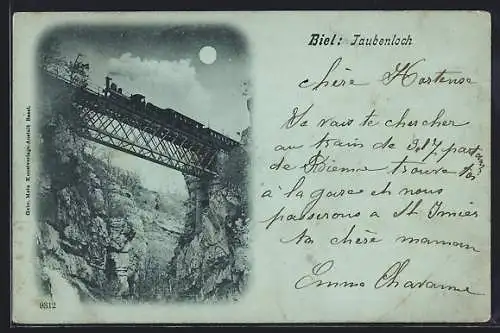 Biel: Taubenloch
chère Hortense
Je vais te chercher
au train de 2.17, part
de Bienne trouve toi
à la gare et nous
passerons à St Imier
Ta chère maman
Emma Chavanne
Gebr. Metz Kunstverlags-Anstalt Basel.
9812